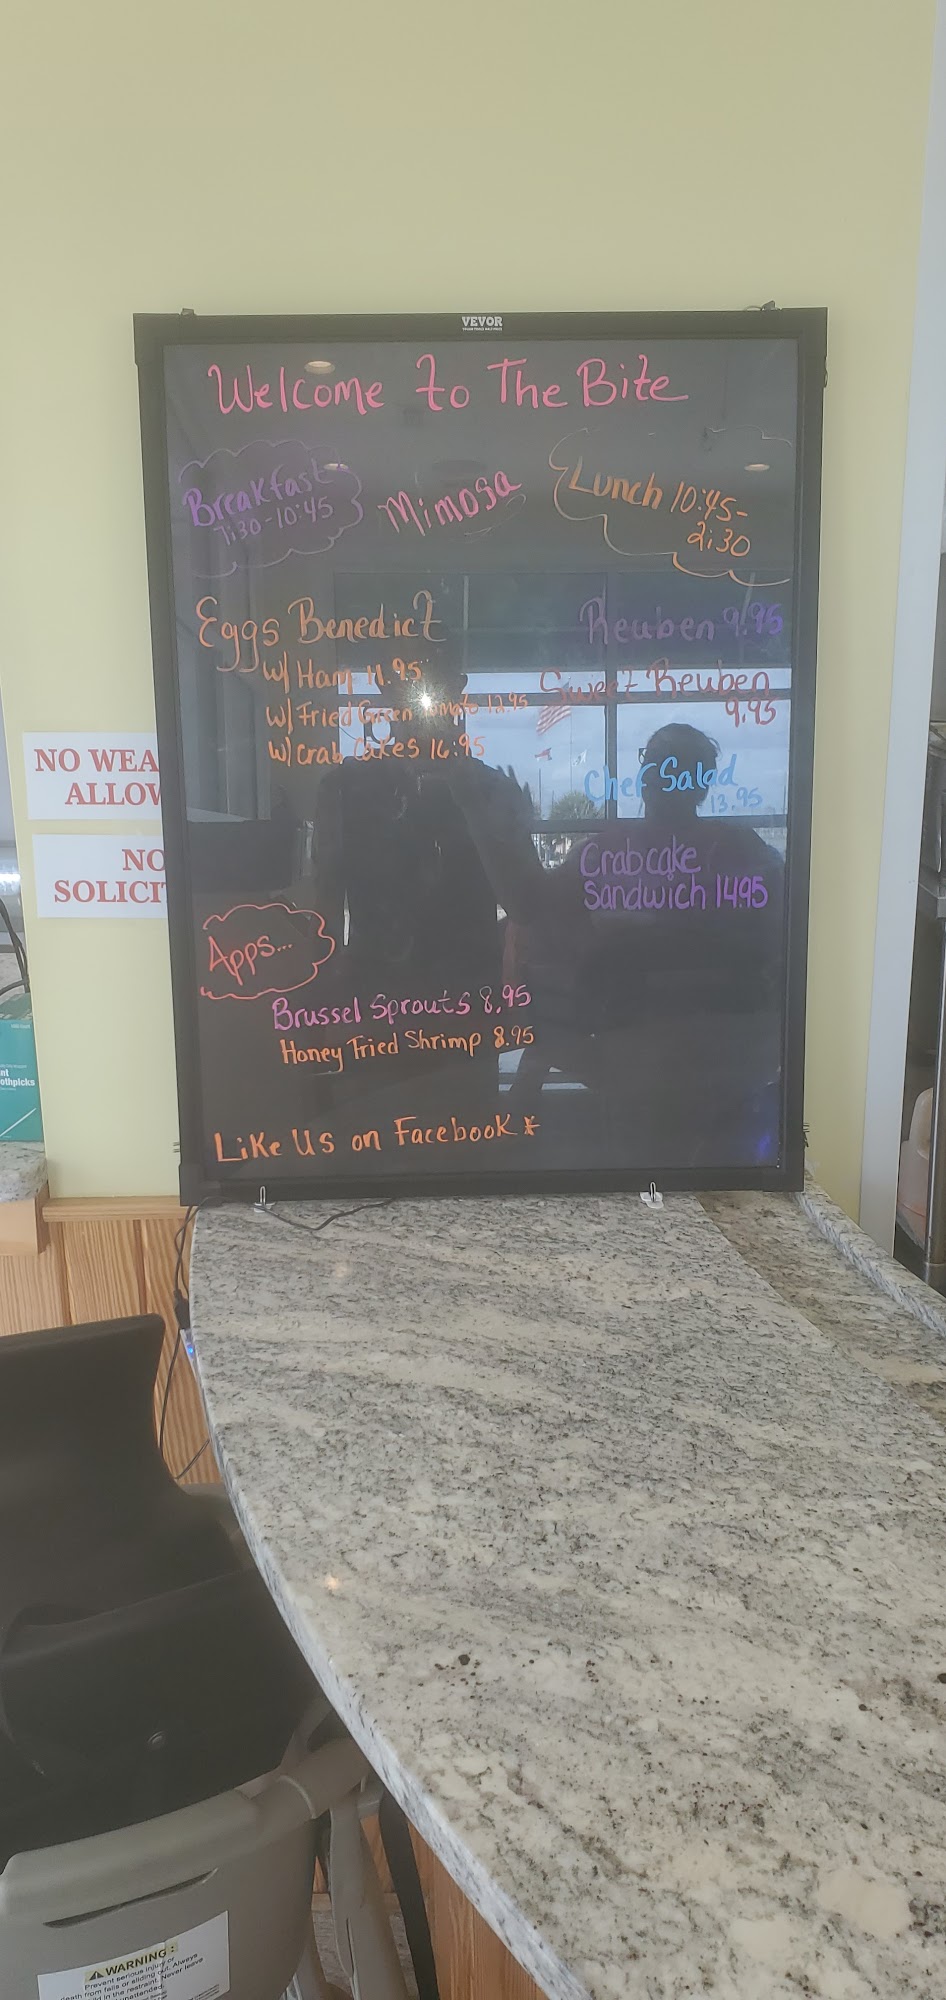 VEVOR
Welcome to The Bite
Breakfast
7:30-10:45
Mimosa
Lunch 10:45-
2:30
Eggs Benedict
w/ Ham 11.95
w/ Fried Green Tomato 12.95
w/ Crab Cakes 16.95
Reuben 9.95
Sweet Reuben
9.95
Chef Salad
13.95
Crabcake
Sandwich 14.95
Apps...
Brussel Sprouts 8.95
Honey Fried Shrimp 8.95
Like Us on Facebook
NO WEA
ALLOW
NO
SOLICIT
nt
othpicks
WARNING:
Prevent serious injury or
death from falls or sliding out. Always
restraint. Never leave
unattended.